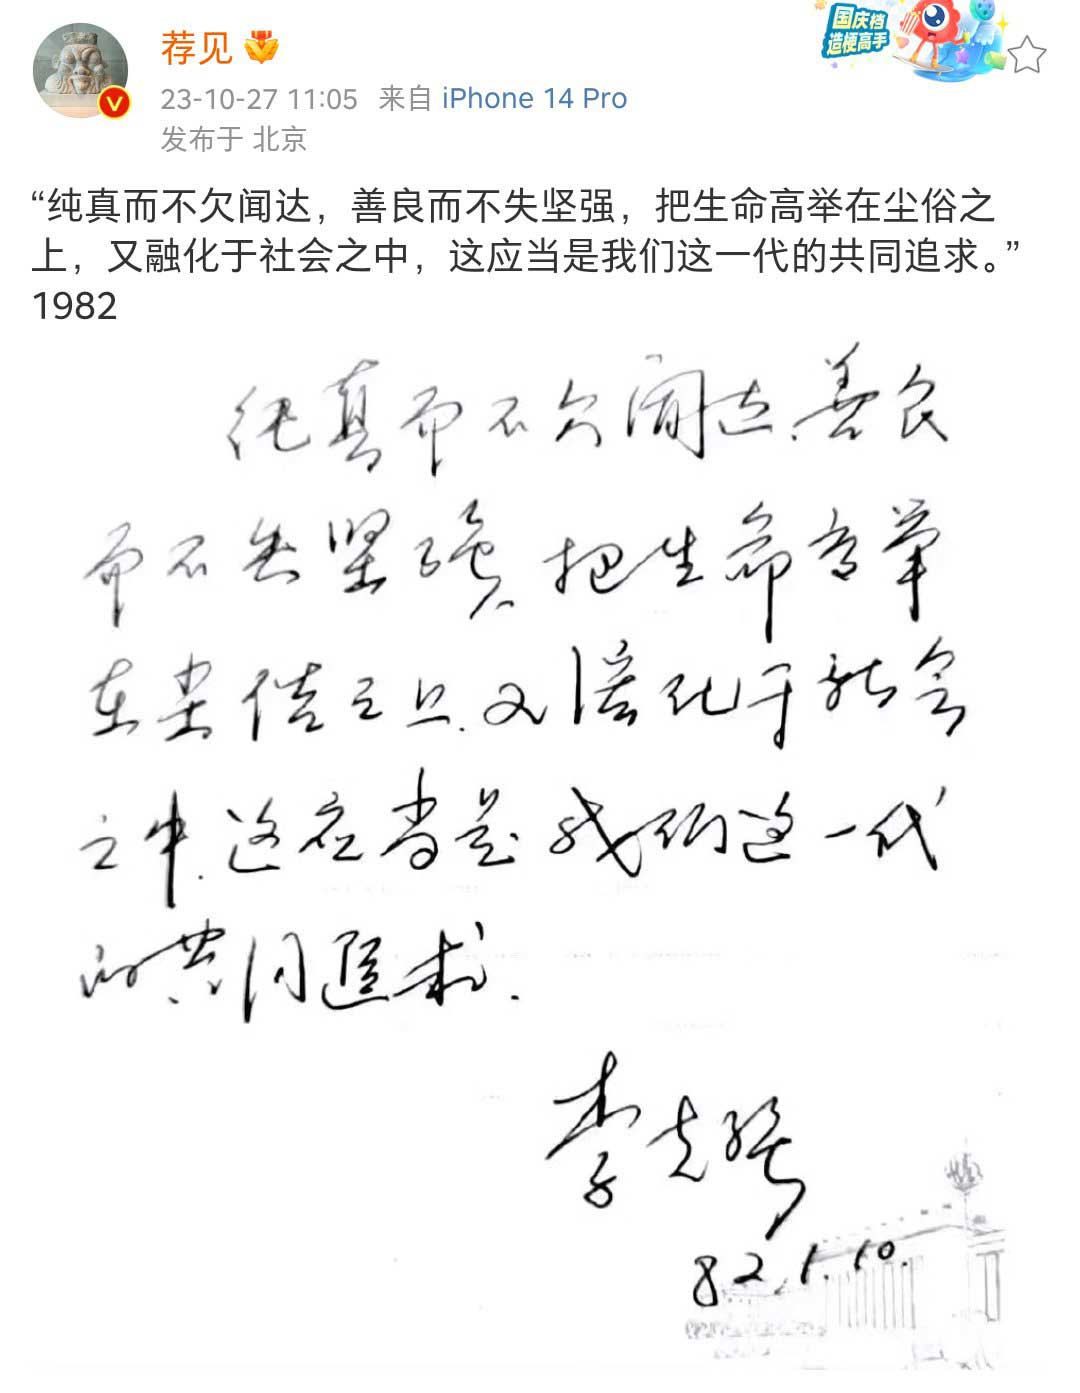 国庆档
造梗高手
荐见
V
23-10-27 11:05 来自 iPhone 14 Pro
发布于 北京
“纯真而不欠闻达，善良而不失坚强，把生命高举在尘俗之
上，又融化于社会之中，这应当是我们这一代的共同追求。”
1982
纯真而不欠闻达.善良
而不失坚强.把生命高举
在尘俗之上.又溶化于社会
之中.这应当是我们这一代
的共同追求.
李克强
82.1.10.